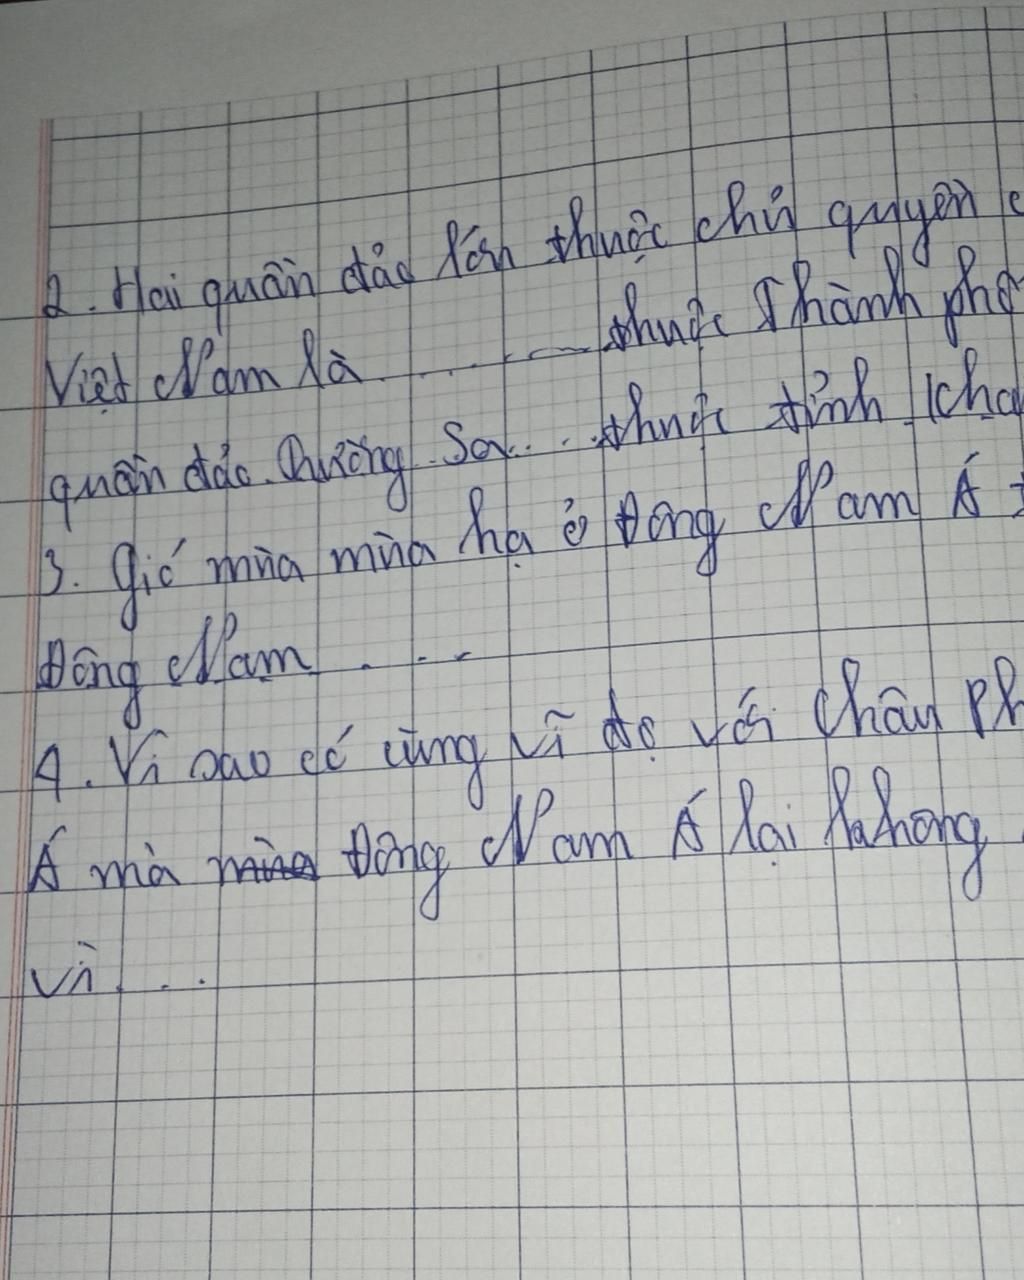 2. Hai quần đảo lớn thuộc chủ quyền c
Việt Nam là ....... thuộc Thành phố
quần đảo. Trường Sa... thuộc tỉnh Kha
3. Gió mùa mùa hạ ở Đông Nam Á
Đông Nam . - -
4. Vì sao có cùng vĩ độ với Châu Ph
Á mà mùa Đông Nam Á lại không
vì ...